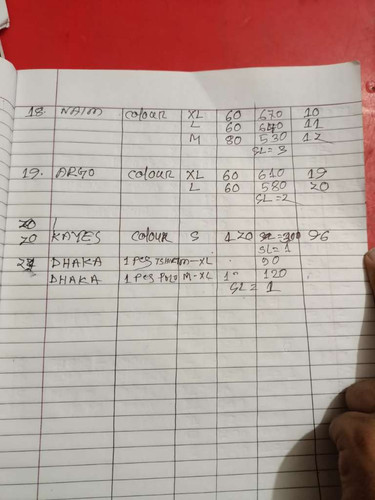 18. NAIM colour XL 60 670 10
L 60 11
M 80 530 12
SL = 3
19. ARGO colour XL 60 610 19
L 60 580 20
SL = 2
20
20 KAYES colour S 120 96
SL = 1
DHAKA 1 PCS M-XL 90
DHAKA 1 PCS POLO M-XL 120
SL = 1